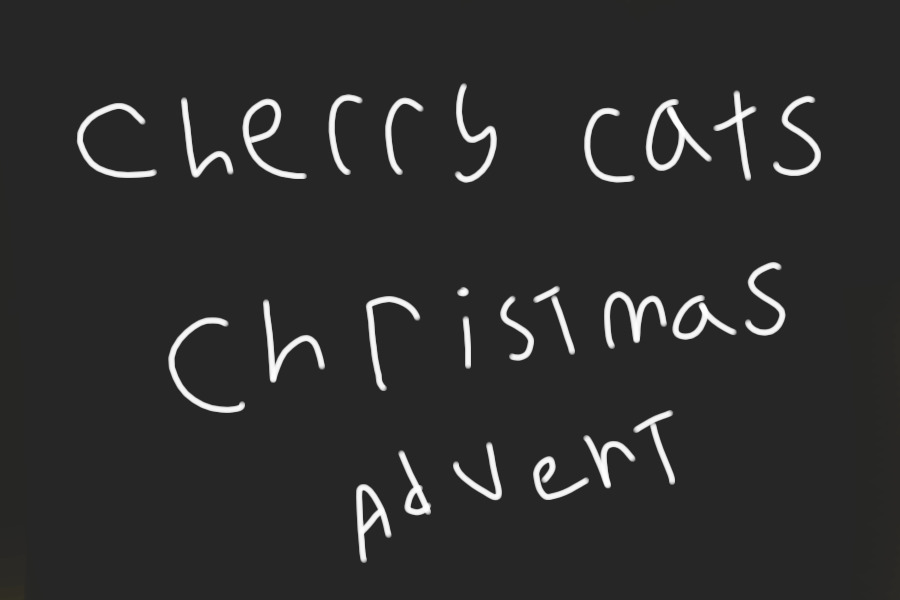 cherry cats
christmas
Advent